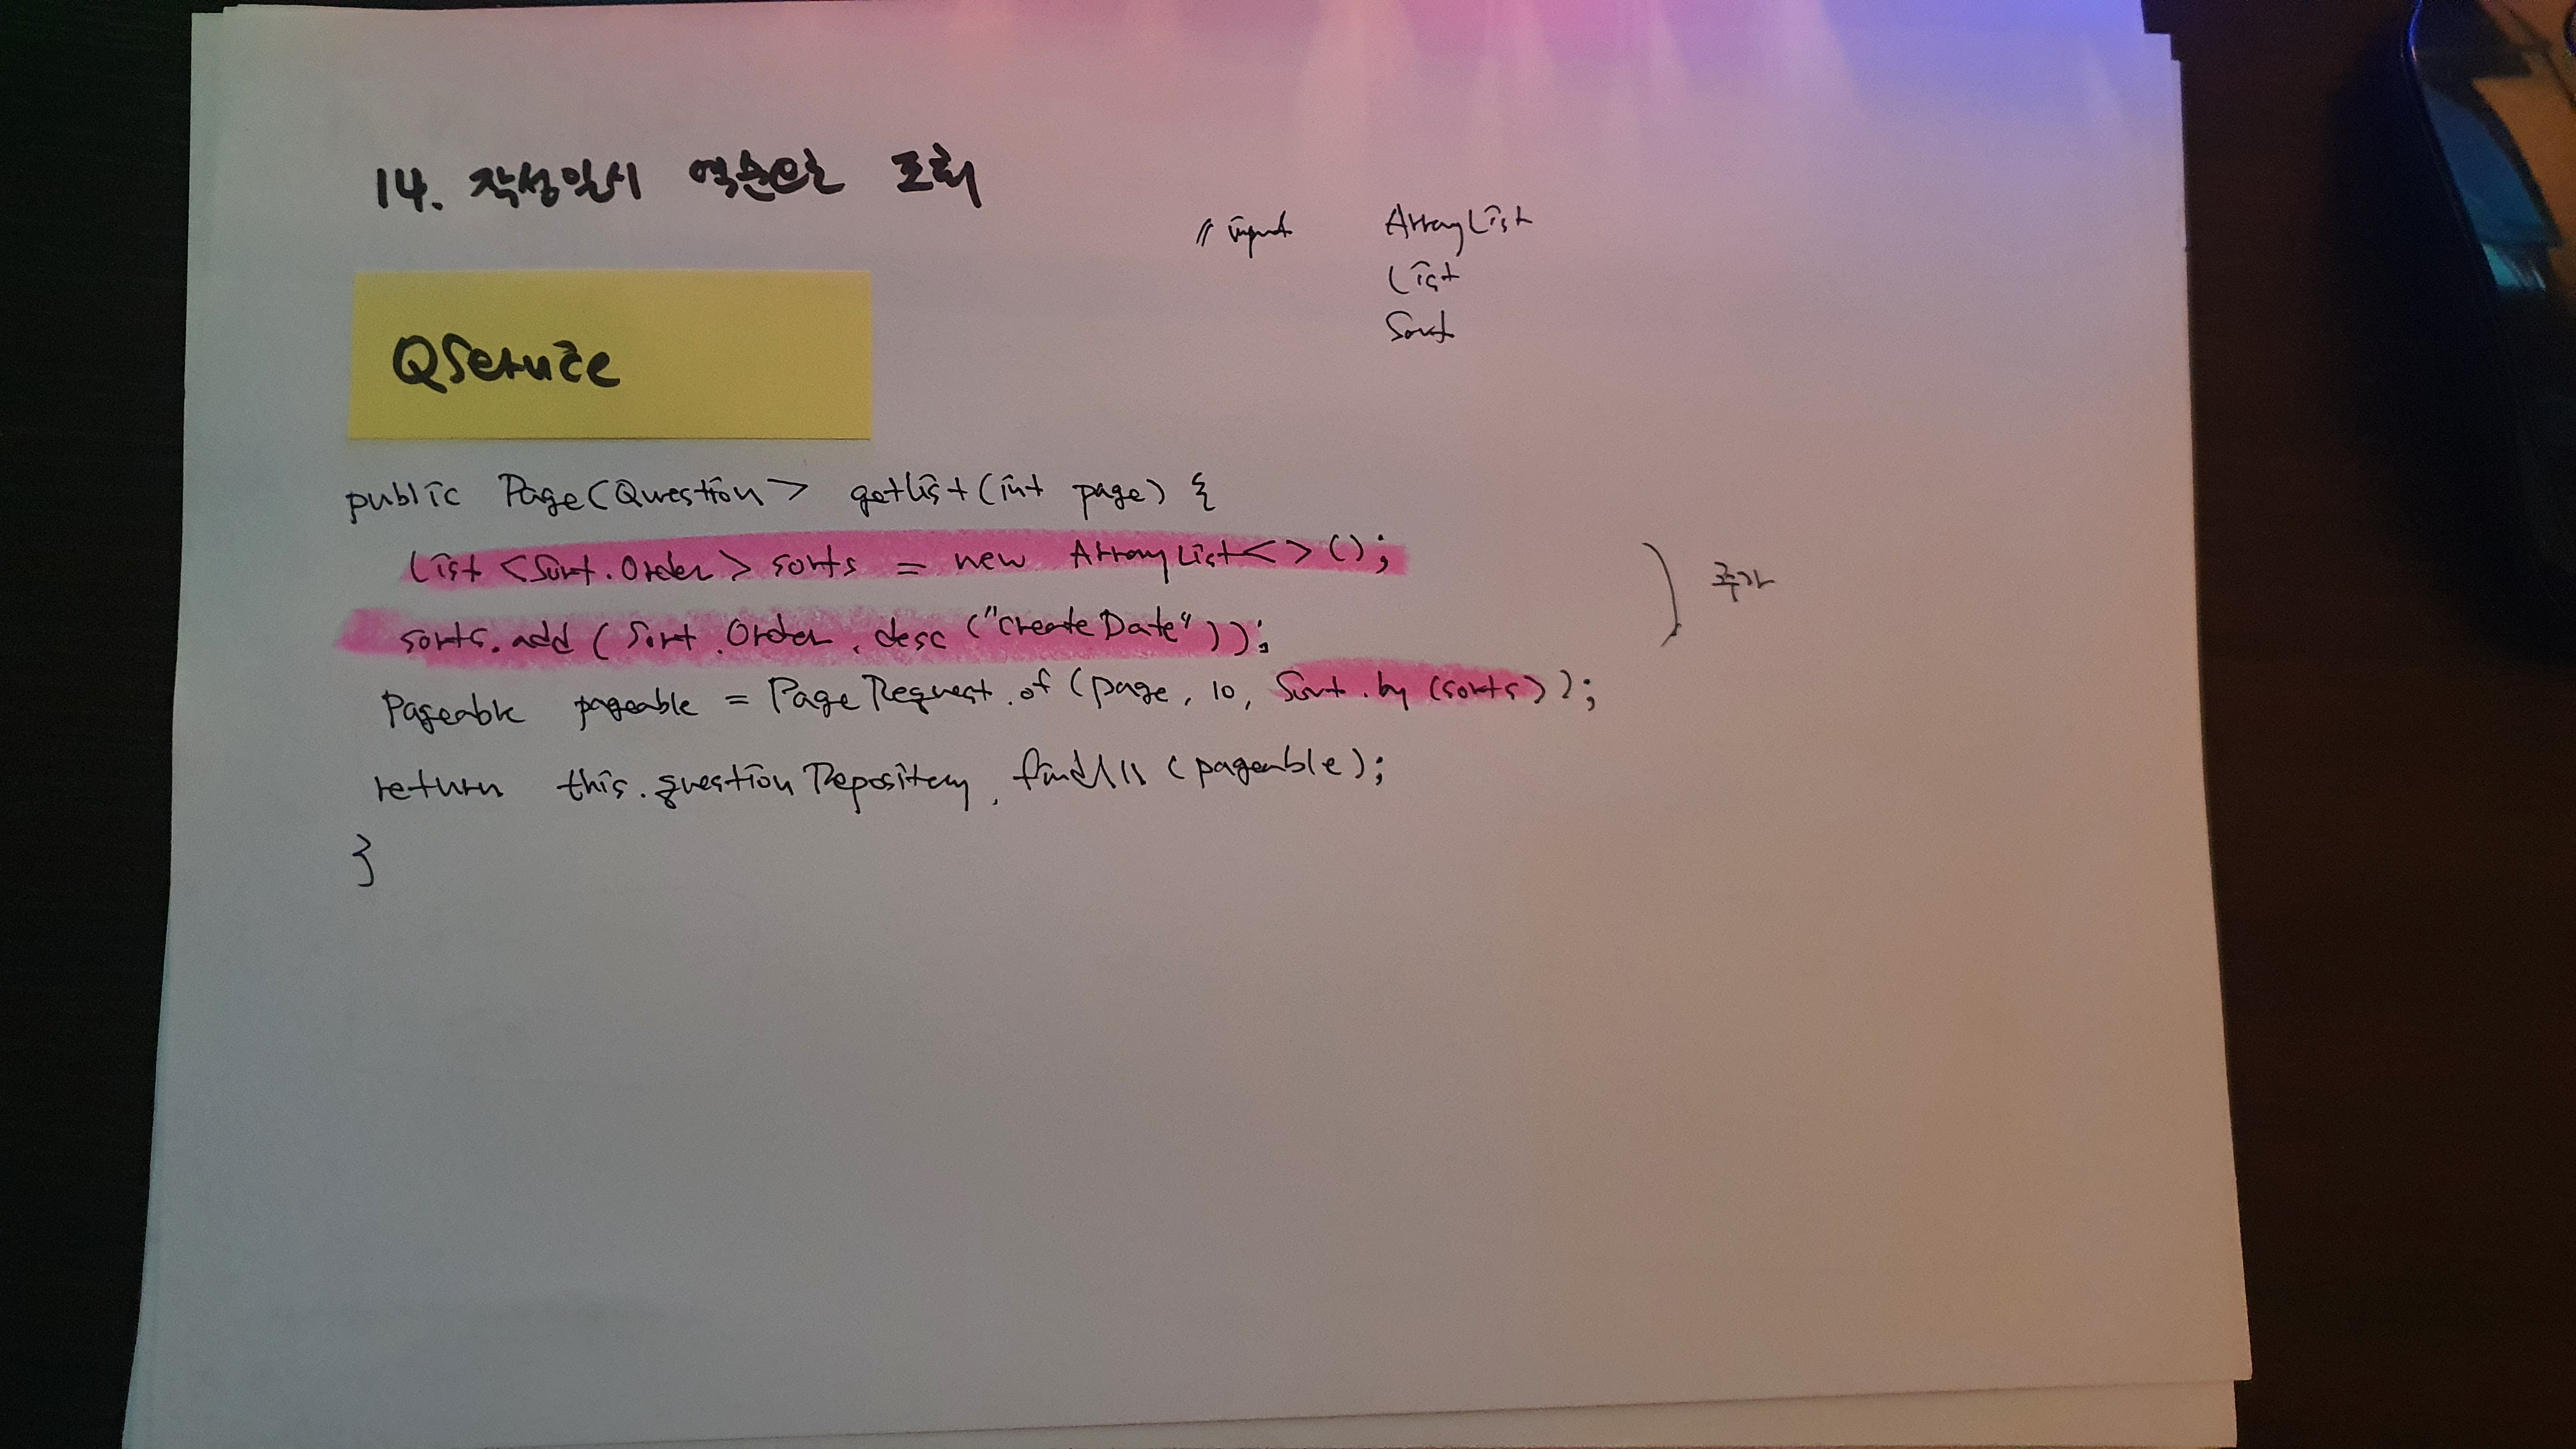 14. 작성일시 역순으로 조회
// input ArrayList
List
Sort
QService
public Page(Question> getList(int page) {
List <Sort.Order> sorts = new ArrayList<>();
sorts.add (Sort.Order.desc ("createDate"));
추가
Pageable pageable = PageRequest.of (page, 10, Sort.by (sorts));
return this.questionRepository.findAll (pageable);
}